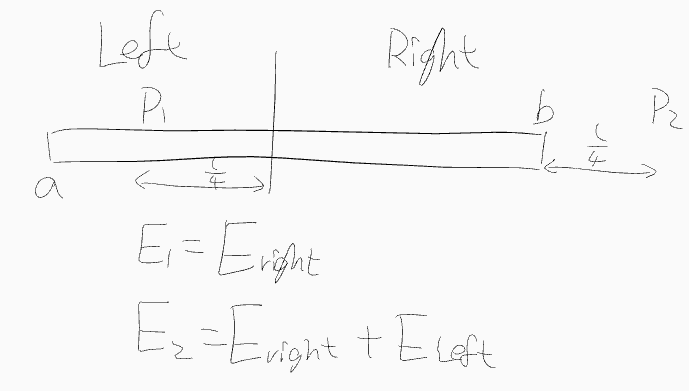 Left Right
P₁ b P₂
l/4
a l/4
E₁ = E right
E₂ = E right + E Left